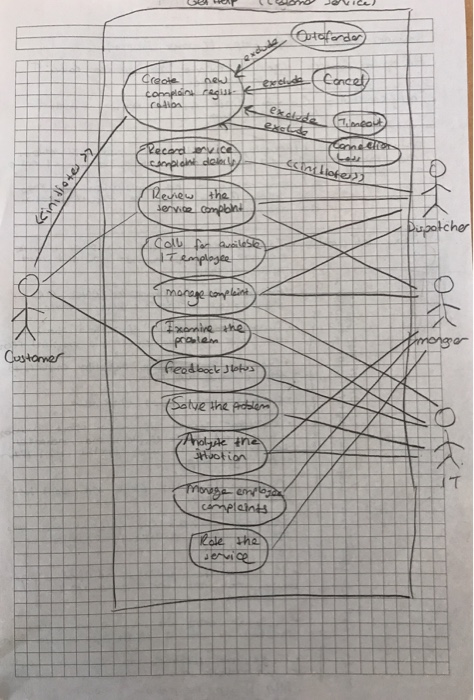 Get Help (Customer Service)
exclude
Outoforder
Create new
complaint regist
ration
exclude
Cancel
exclude
Timeout
exclude
Connection
Loss
<<initiate>>
Record service
complaint details
<<initiate>>
Review the
service complaint
Dispatcher
Call for available
IT employee
manage complaint
Examine the
problem
manger
Customer
Feedback status
Solve the problem
Analyze the
situation
IT
Manage employee
complaints
Rate the
service